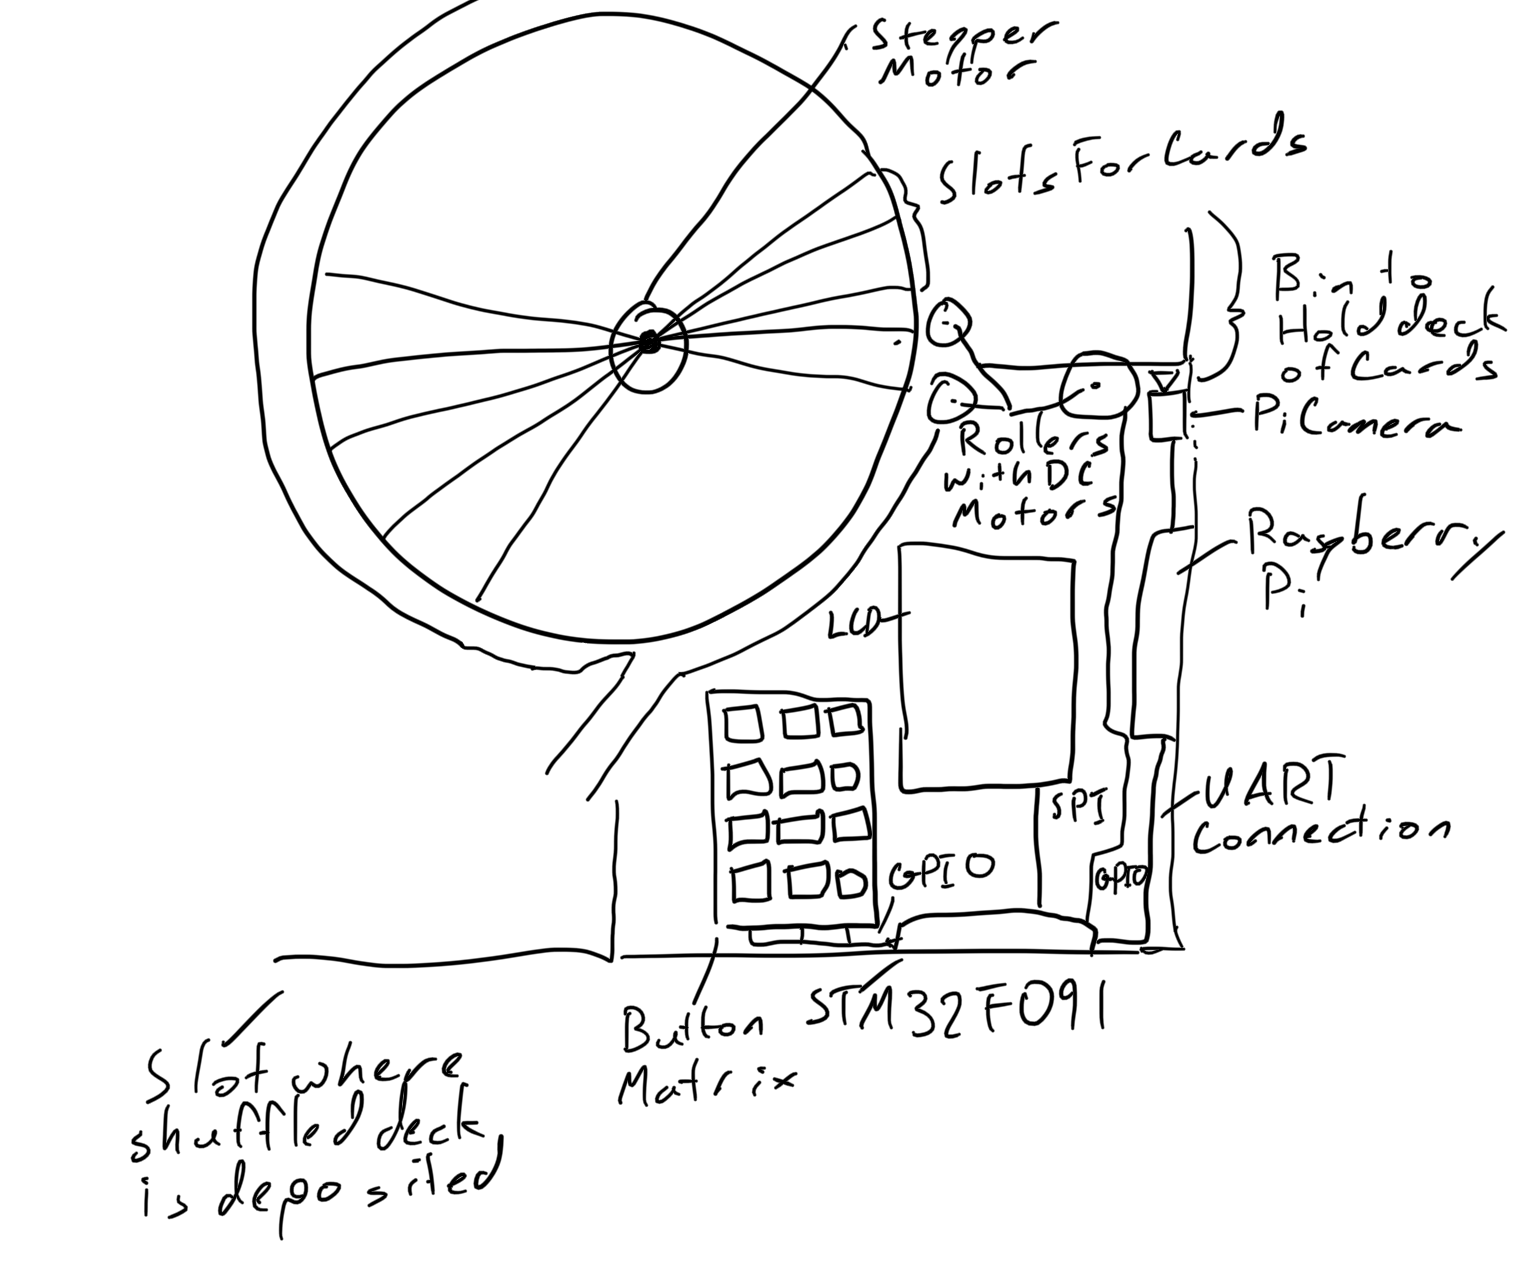 Stepper
Motor
Slots For Cards
Bin to
Hold deck
of Cards
Pi Camera
Rollers
with DC
Motors
Raspberry
Pi
LCD
SPI
UART
Connection
GPIO
GPIO
STM32F091
Button
Matrix
Slot where
shuffled deck
is deposited